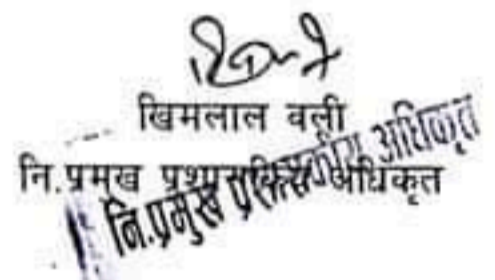 खिमलाल वली
नि.प्रमुख प्रशासकिय अधिकृत
नि.प्रमुख प्रशासकीय अधिकृत